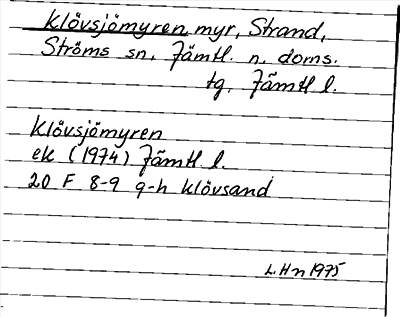 Klövsjömyren myr, Strand,
Ströms sn, Jämtl. n. doms.
tg, Jämtl l.
Klövsjömyren
ek (1974) Jämtl l.
20 F 8-9 g-h Klövsand
L.Hn 1975